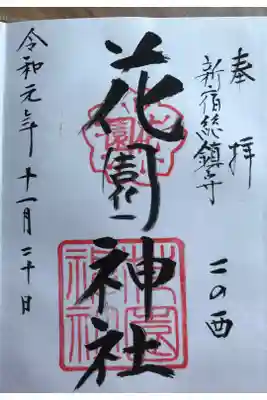 奉拝
新宿総鎮守
二の酉
花園神社
令和元年十一月二十日